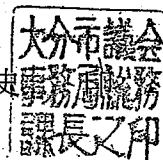 史
大分市議会
事務局総務
課長之印